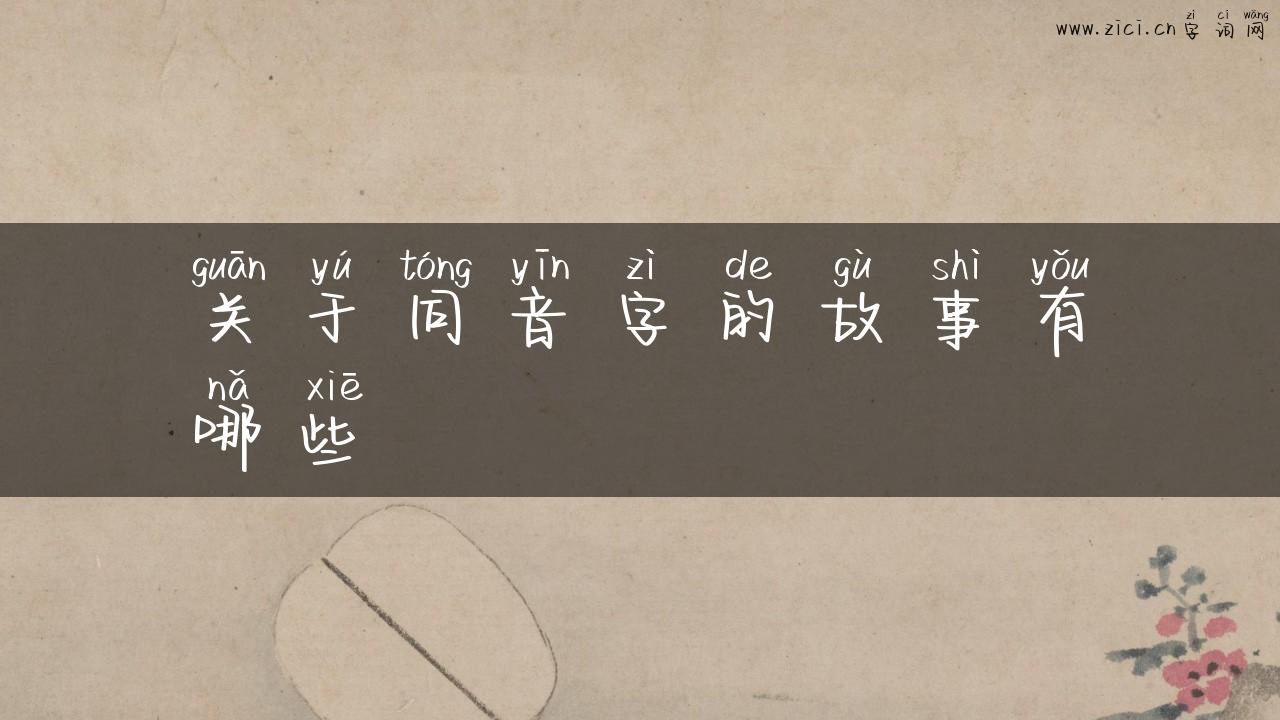 zì cí wǎng
www.zici.cn字词网
guān yú tóng yīn zì de gù shì yǒu
关于同音字的故事有
nǎ xiē
哪些